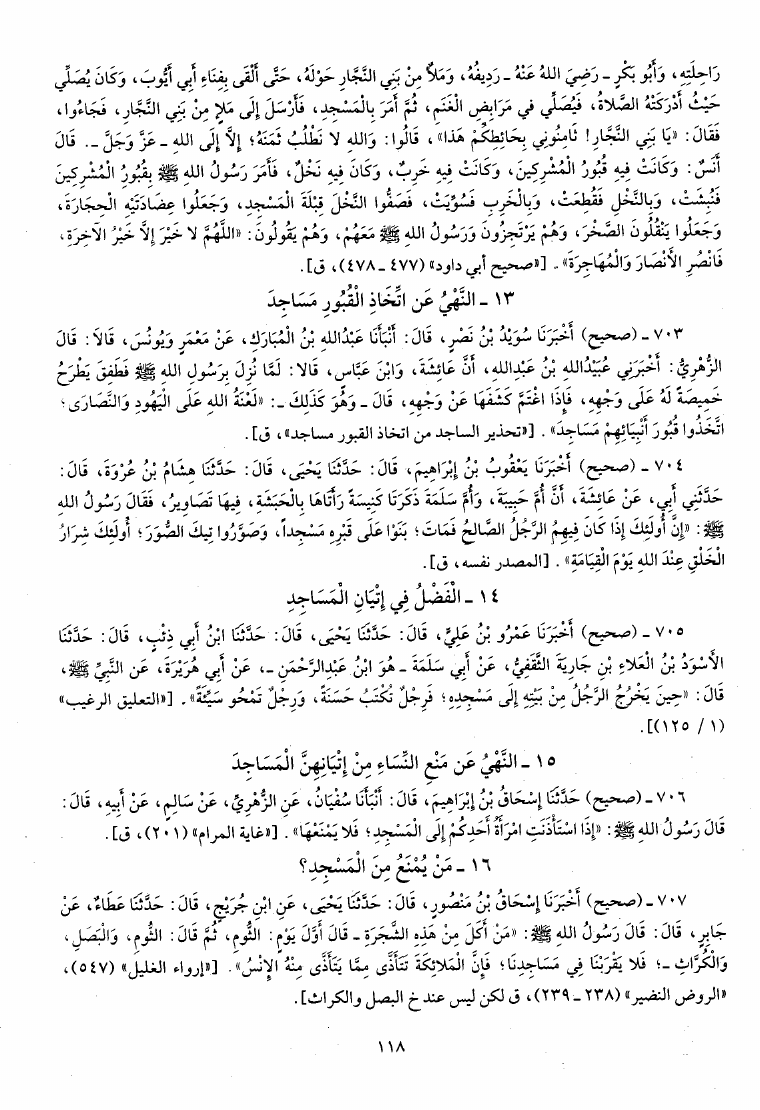 رَاحِلَتِهِ، وَأَبُو بَكْرٍ ـ رَضِيَ اللهُ عَنْهُ ـ رَدِيفُهُ، وَمَلأٌ مِنْ بَنِي النَّجَّارِ حَوْلَهُ، حَتَّى أَلْقَى بِفِنَاءِ أَبِي أَيُّوبَ، وَكَانَ يُصَلِّي
حَيْثُ أَدْرَكَتْهُ الصَّلاَةُ، فَيُصَلِّي في مَرَابِضِ الْغَنَمِ، ثُمَّ أَمَرَ بِالْمَسْجِدِ، فَأَرْسَلَ إِلَى مَلإٍ مِنْ بَنِي النَّجَّارِ، فَجَاءُوا،
فَقَالَ: «يَا بَنِي النَّجَّارِ! ثَامِنُونِي بِحَائِطِكُمْ هَذَا»، قَالُوا: وَاللهِ لا نَطْلُبُ ثَمَنَهُ؛ إِلَّا إِلَى اللهِ ـ عَزَّ وَجَلَّ ـ. قَالَ
أَنَسٌ: وَكَانَتْ فِيهِ قُبُورُ الْمُشْرِكِينَ، وَكَانَتْ فِيهِ خَرِبٌ، وَكَانَ فِيهِ نَخْلٌ، فَأَمَرَ رَسُولُ اللهِ ﷺ بِقُبُورِ الْمُشْرِكِينَ
فَنُبِشَتْ، وَبِالنَّخْلِ فَقُطِعَتْ، وَبِالْخَرِبِ فَسُوِّيَتْ، فَصَفُّوا النَّخْلَ قِبْلَةَ الْمَسْجِدِ، وَجَعَلُوا عِضَادَتَيْهِ الْحِجَارَةَ،
وَجَعَلُوا يَنْقُلُونَ الصَّخْرَ، وَهُمْ يَرْتَجِزُونَ وَرَسُولُ اللهِ ﷺ مَعَهُمْ، وَهُمْ يَقُولُونَ: «اللَّهُمَّ لا خَيْرَ إِلاَّ خَيْرُ الآخِرَةِ،
فَانْصُرِ الأَنْصَارَ وَالْمُهَاجِرَةَ». [«صحيح أبي داود» (٤٧٧ ـ ٤٧٨)، ق].
١٣ ـ النَّهْيُ عَنِ اتِّخَاذِ الْقُبُورِ مَسَاجِدَ
٧٠٣ ـ (صحيح) أَخْبَرَنَا سُوَيْدُ بْنُ نَصْرٍ، قَالَ: أَنْبَأَنَا عَبْدُاللهِ بْنُ الْمُبَارَكِ، عَنْ مَعْمَرٍ وَيُونُسَ، قَالاَ: قَالَ
الزُّهْرِيُّ: أَخْبَرَنِي عُبَيْدُاللهِ بْنُ عَبْدِاللهِ، أَنَّ عَائِشَةَ، وَابْنَ عَبَّاسٍ، قَالا: لَمَّا نُزِلَ بِرَسُولِ اللهِ ﷺ فَطَفِقَ يَطْرَحُ
خَمِيصَةً لَهُ عَلَى وَجْهِهِ، فَإِذَا اغْتَمَّ كَشَفَهَا عَنْ وَجْهِهِ، قَالَ ـ وَهُوَ كَذَلِكَ ـ: «لَعْنَةُ اللهِ عَلَى الْيَهُودِ وَالنَّصَارَى؛
اتَّخَذُوا قُبُورَ أَنْبِيَائِهِمْ مَسَاجِدَ». [«تحذير الساجد من اتخاذ القبور مساجد»، ق].
٧٠٤ ـ (صحيح) أَخْبَرَنَا يَعْقُوبُ بْنُ إِبْرَاهِيمَ، قَالَ: حَدَّثَنَا يَحْيَى، قَالَ: حَدَّثَنَا هِشَامُ بْنُ عُرْوَةَ، قَالَ:
حَدَّثَنِي أَبِي، عَنْ عَائِشَةَ، أَنَّ أُمَّ حَبِيبَةَ، وَأُمَّ سَلَمَةَ ذَكَرَتَا كَنِيسَةً رَأَتَاهَا بِالْحَبَشَةِ، فِيهَا تَصَاوِيرُ، فَقَالَ رَسُولُ اللهِ
ﷺ: «إِنَّ أُولَئِكَ إِذَا كَانَ فِيهِمُ الرَّجُلُ الصَّالِحُ فَمَاتَ؛ بَنَوْا عَلَى قَبْرِهِ مَسْجِداً، وَصَوَّرُوا تِيكَ الصُّوَرَ؛ أُولَئِكَ شِرَارُ
الْخَلْقِ عِنْدَ اللهِ يَوْمَ الْقِيَامَةِ». [المصدر نفسه، ق].
١٤ ـ الْفَضْلُ فِي إِتْيَانِ الْمَسَاجِدِ
٧٠٥ ـ (صحيح) أَخْبَرَنَا عَمْرُو بْنُ عَلِيٍّ، قَالَ: حَدَّثَنَا يَحْيَى، قَالَ: حَدَّثَنَا ابْنُ أَبِي ذِئْبٍ، قَالَ: حَدَّثَنَا
الأَسْوَدُ بْنُ الْعَلاءِ بْنِ جَارِيَةَ الثَّقَفِيُّ، عَنْ أَبِي سَلَمَةَ ـ هُوَ ابْنُ عَبْدِالرَّحْمَنِ ـ، عَنْ أَبِي هُرَيْرَةَ، عَنِ النَّبِيِّ ﷺ،
قَالَ: «حِينَ يَخْرُجُ الرَّجُلُ مِنْ بَيْتِهِ إِلَى مَسْجِدِهِ؛ فَرِجْلٌ تُكْتَبُ حَسَنَةً، وَرِجْلٌ تَمْحُو سَيِّئَةً». [«التعليق الرغيب»
(١ / ١٢٥)].
١٥ ـ النَّهْيُ عَن مَنْعِ النِّسَاءِ مِنْ إِتْيَانِهِنَّ الْمَسَاجِدَ
٧٠٦ ـ (صحيح) حَدَّثَنَا إِسْحَاقُ بْنُ إِبْرَاهِيمَ، قَالَ: أَنْبَأَنَا سُفْيَانُ، عَنِ الزُّهْرِيِّ، عَنْ سَالِمٍ، عَنْ أَبِيهِ، قَالَ:
قَالَ رَسُولُ اللهِ ﷺ: «إِذَا اسْتَأْذَنَتِ امْرَأَةُ أَحَدِكُمْ إِلَى الْمَسْجِدِ؛ فَلا يَمْنَعْهَا». [«غاية المرام» (٢٠١)، ق].
١٦ ـ مَنْ يُمْنَعُ مِنَ الْمَسْجِدِ؟
٧٠٧ ـ (صحيح) أَخْبَرَنَا إِسْحَاقُ بْنُ مَنْصُورٍ، قَالَ: حَدَّثَنَا يَحْيَى، عَنِ ابْنِ جُرَيْجٍ، قَالَ: حَدَّثَنَا عَطَاءٌ، عَنْ
جَابِرٍ، قَالَ: قَالَ رَسُولُ اللهِ ﷺ: «مَنْ أَكَلَ مِنْ هَذِهِ الشَّجَرَةِ ـ قَالَ أَوَّلَ يَوْمٍ: الثُّومِ، ثُمَّ قَالَ: الثُّومِ، وَالْبَصَلِ،
وَالْكُرَّاثِ ـ؛ فَلا يَقْرَبْنَا فِي مَسَاجِدِنَا؛ فَإِنَّ الْمَلائِكَةَ تَتَأَذَّى مِمَّا يَتَأَذَّى مِنْهُ الإِنْسُ». [«إرواء الغليل» (٥٤٧)،
«الروض النضير» (٢٣٨ ـ ٢٣٩)، ق لكن ليس عند خ البصل والكراث].
١١٨